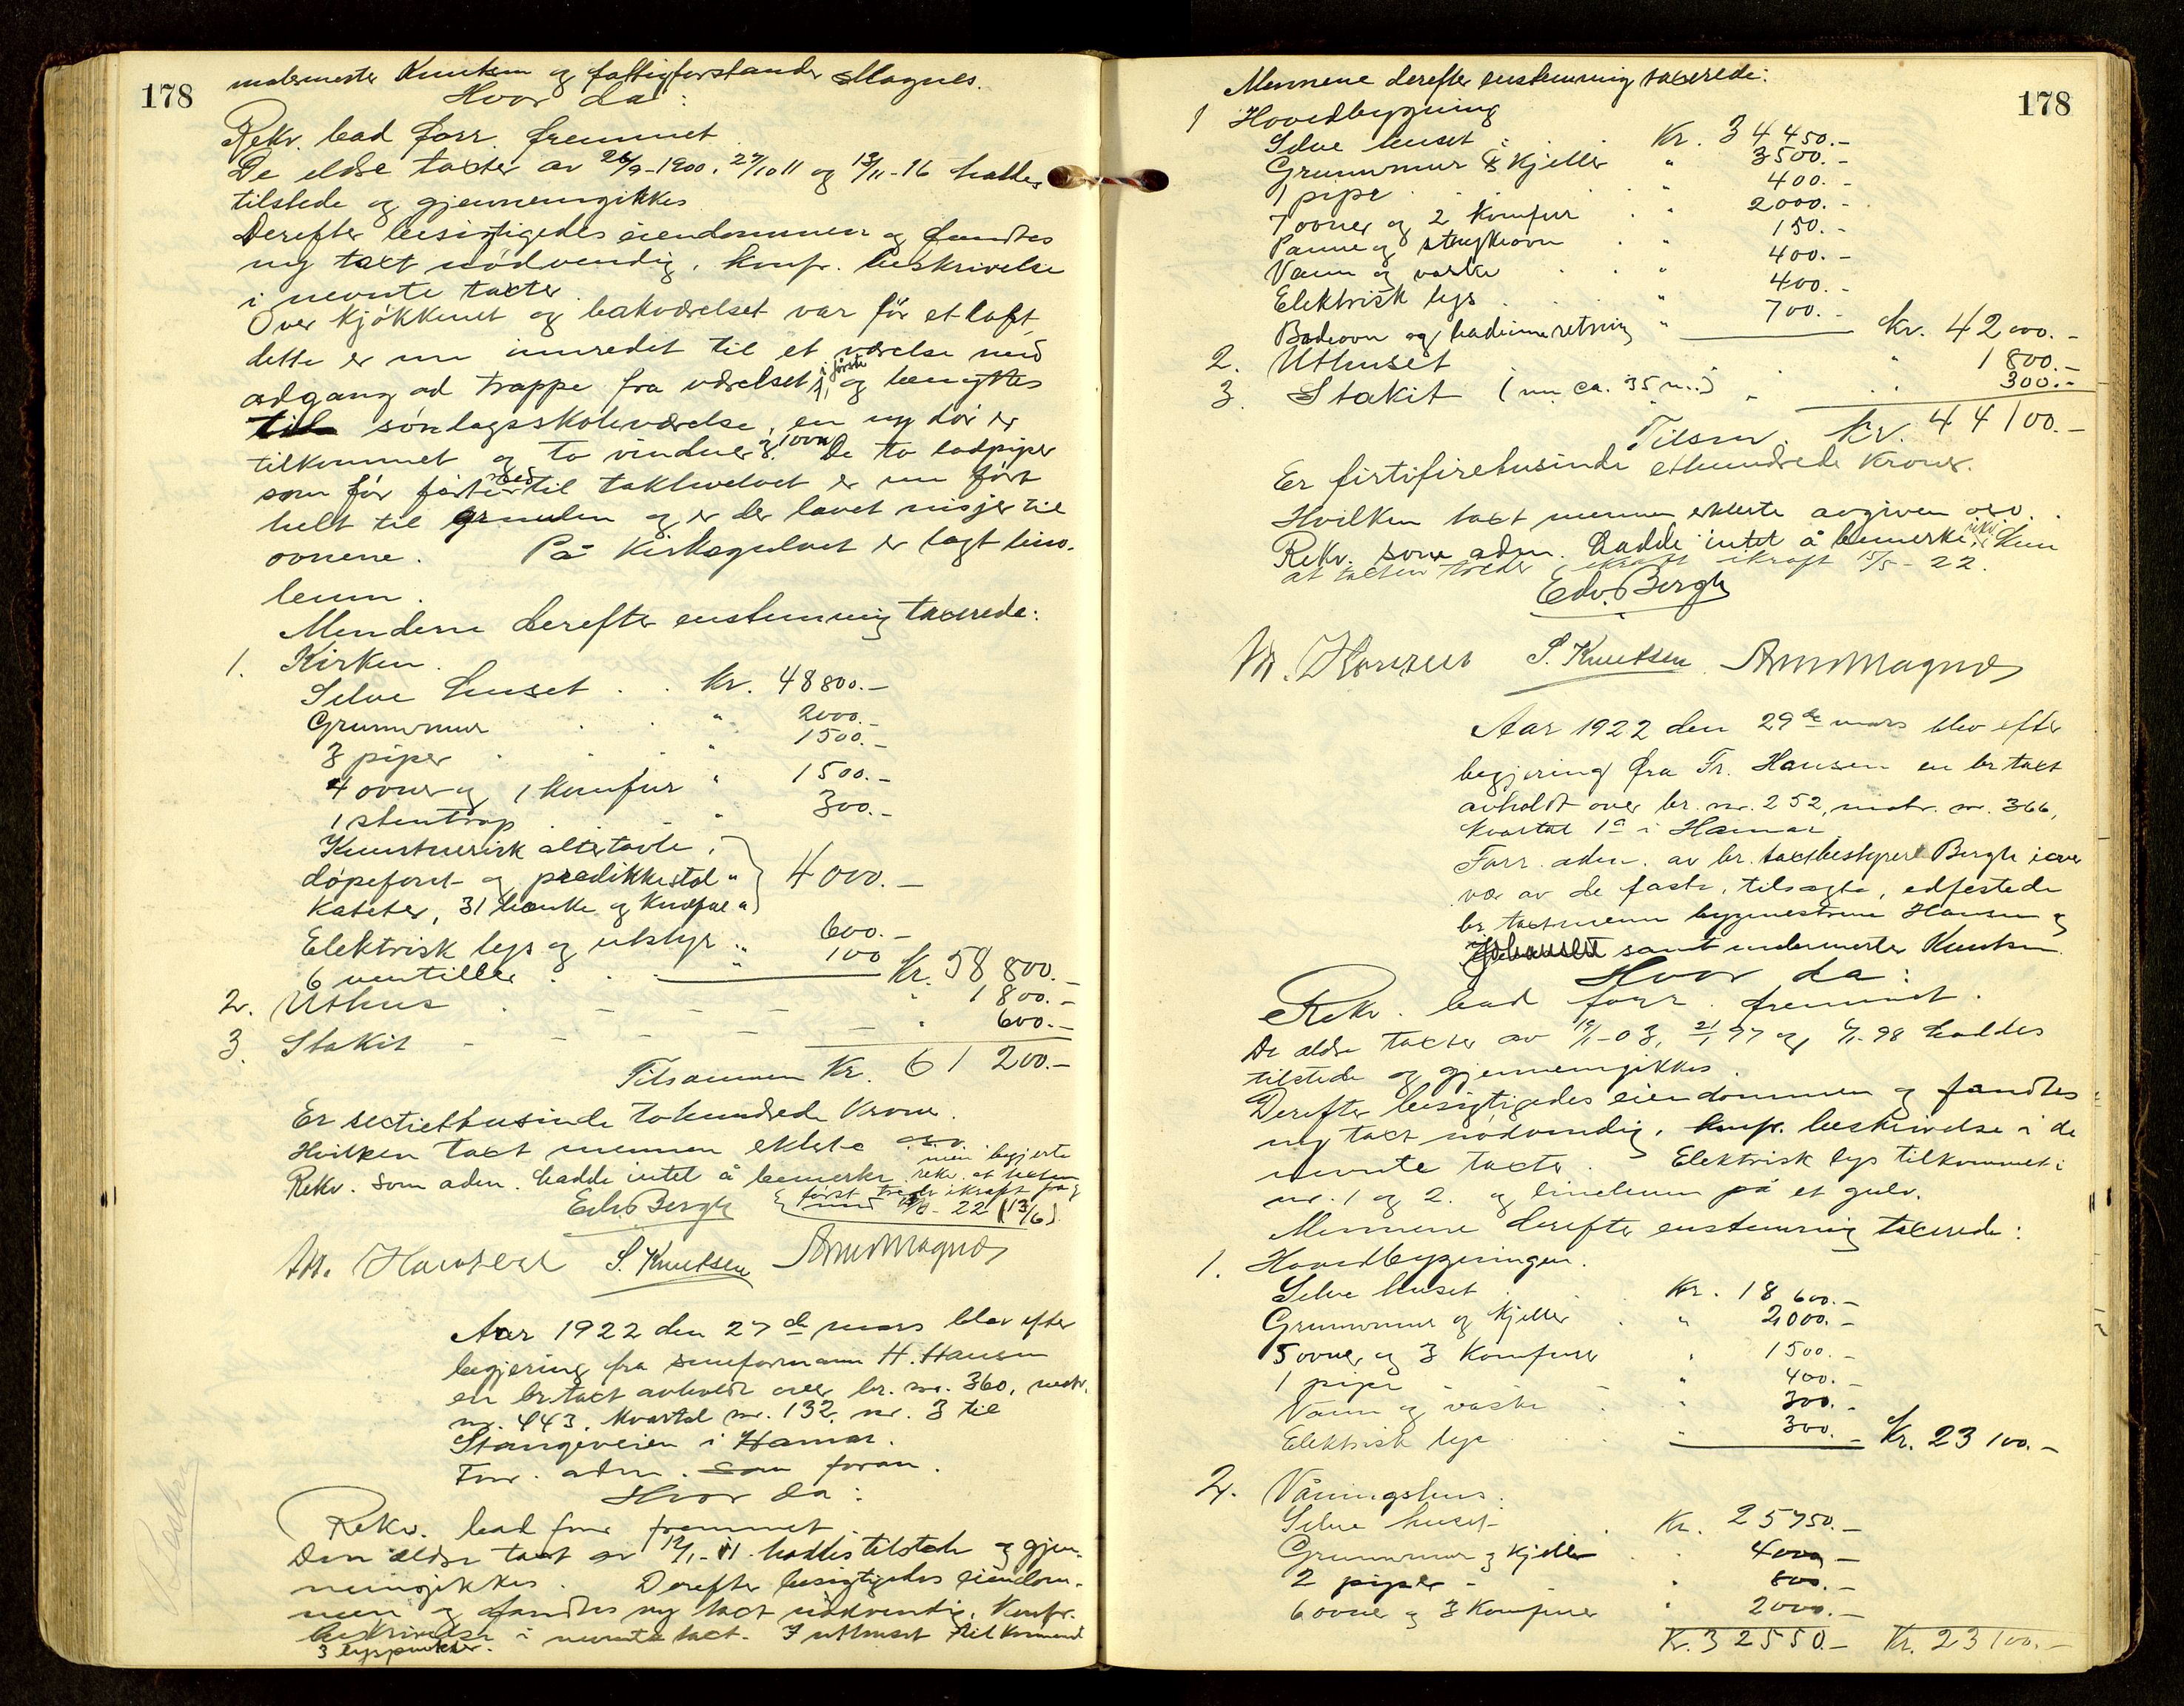 178
malermester Knutsen og fattigforstander Magnes.
Hvor da:
Rekv. bad forr. fremmet.
De eldre taxter av 26/9-1900, 27/10 11 og 13/11-16 haddes
tilstede og gjennemgikkes
Derefter besigtigedes eiendommen og fandtes
ny taxt nødvendig, konfr. beskrivelse
i nevnte taxter.
Over kjøkkenet og bakværelset var før et loft,
dette er nu innredet til et værelse med
adgang ad trappe fra værelset i første og benyttes
til søndagsskoleværelse, en ny dør er
tilkommet og to vinduer og 1 ovn. De to lodpiper
som før førtes ned til takhvelvet er nu ført
helt til grunden og er der lavet nisjer til
ovnene. På kirkegulvet er lagt lino-
leum.
Mendene derefter enstemmig taxerede:
1. Kirken.
Selve huset . . Kr. 48800.-
Grunnmur . . " 2000.-
3 piper . . " 1500.-
4 ovner og 1 komfur " 1500.-
1 stentrap . . " 300.-
Kunstnerisk altertavle,
døpefont og predikkestol "
kateter, 31 benke og knefal " } 4000.-
Elektrisk lys og utstyr " 600.-
6 ventiller . . " 100 Kr. 58 800.-
2. Uthus - - - - " 1 800.-
3. Stakit - - - - " 600.-
Tilsammen Kr. 61 200.-
Er sextiettusinde tohundrede Kroner.
Hvilken taxt mennen erklerte osv.
Rekv. som adm. hadde intet å bemerke, men begjerte
rekv. at taxten
først træder ikraft fra
22 (13/6).
Edv. Bergh
M. Hansen S. Knutsen Arne Magnes
Aar 1922 den 27de mars blev efter
begjering fra H. Hansen
en br.taxt avholdt over br. nr. 360, matr.
nr. 443, kvartal nr. 132, nr. 3 til
Stangeveien i Hamar.
Forr. adm. som foran.
Hvor da:
Rekv. bad forr fremmet.
Den ældre taxt av 12/1-11 haddes tilstede og gjen-
nemgikkes. Derefter besigtigedes eiendom-
men og fandtes ny taxt nødvendig, konfr.
beskrivelse i nevnte taxt. I uthuset tilkommet
3 lyspunkter.
178
Mennene derefter enstemmig taxerede:
1 Hovedbygning
Selve huset . Kr. 34450.-
Grunnmur & Kjeller " 3500.-
1 pipe . . " 400.-
7 ovner og 2 komfur . " 2000.-
Panne og strykeovn . " 150.-
Vann og vaske . . " 400.-
Elektrisk lys . . " 400.-
Badeovn og badeinnretning " 700.- Kr. 42000.-
2. Uthuset . . " 1800.-
3. Stakit (nu ca. 35 m.) . " 300.-
Tilsm. Kr. 44100.-
Er firtifiretusinde ethundrede Kroner.
Hvilken taxt mennen erklerte avgiven osv.
Rekv. som adm. hadde intet å bemerke, kun
at taxten træder ikraft 15/5-22.
Edv. Bergh
M. Hansen S. Knutsen Arne Magnes
Aar 1922 den 29de mars blev efter
begjering fra Fr. Hansen en br taxt
avholdt over br. nr. 252, matr. nr. 366,
kvartal 1a i Hamar
Forr. adm. av br. taxtbestyrer Bergh i over
vær av de faste, tilsagte, edfestede
br. taxtmenn bygmestrene Hansen og
Johansen samt malermester Knutsen
Hvor da:
Rekv. bad forr. fremmet.
De ældre taxter av 19/1-03, 21/1 97 og 6/1-98 haddes
tilstede og gjennemgikkes.
Derefter besigtigedes eiendommen og fandtes
ny taxt nødvendig, konfr. beskrivelse i de
nevnte taxter. Elektrisk lys tilkommet i
nr. 1 og 2. og linoleum på et gulv.
Mennene derefter enstemmig taxerede:
1. Hovedbygningen.
Selve huset . Kr. 18 600.-
Grunnmur og kjeller . " 2000.-
5 ovner og 3 Komfurer " 1500.-
1 pipe - - " 400.-
Vann og vaske . " 300.-
Elektrisk lys . . " 300.- Kr. 23 100.-
2. Våningshus.
Selve huset . Kr. 25750.-
Grunnmur og kjeller . " 4000.-
2 piper - " 800.-
6 ovner og 3 Komfurer " 2000.-
Kr. 32550.- Kr. 23100.-